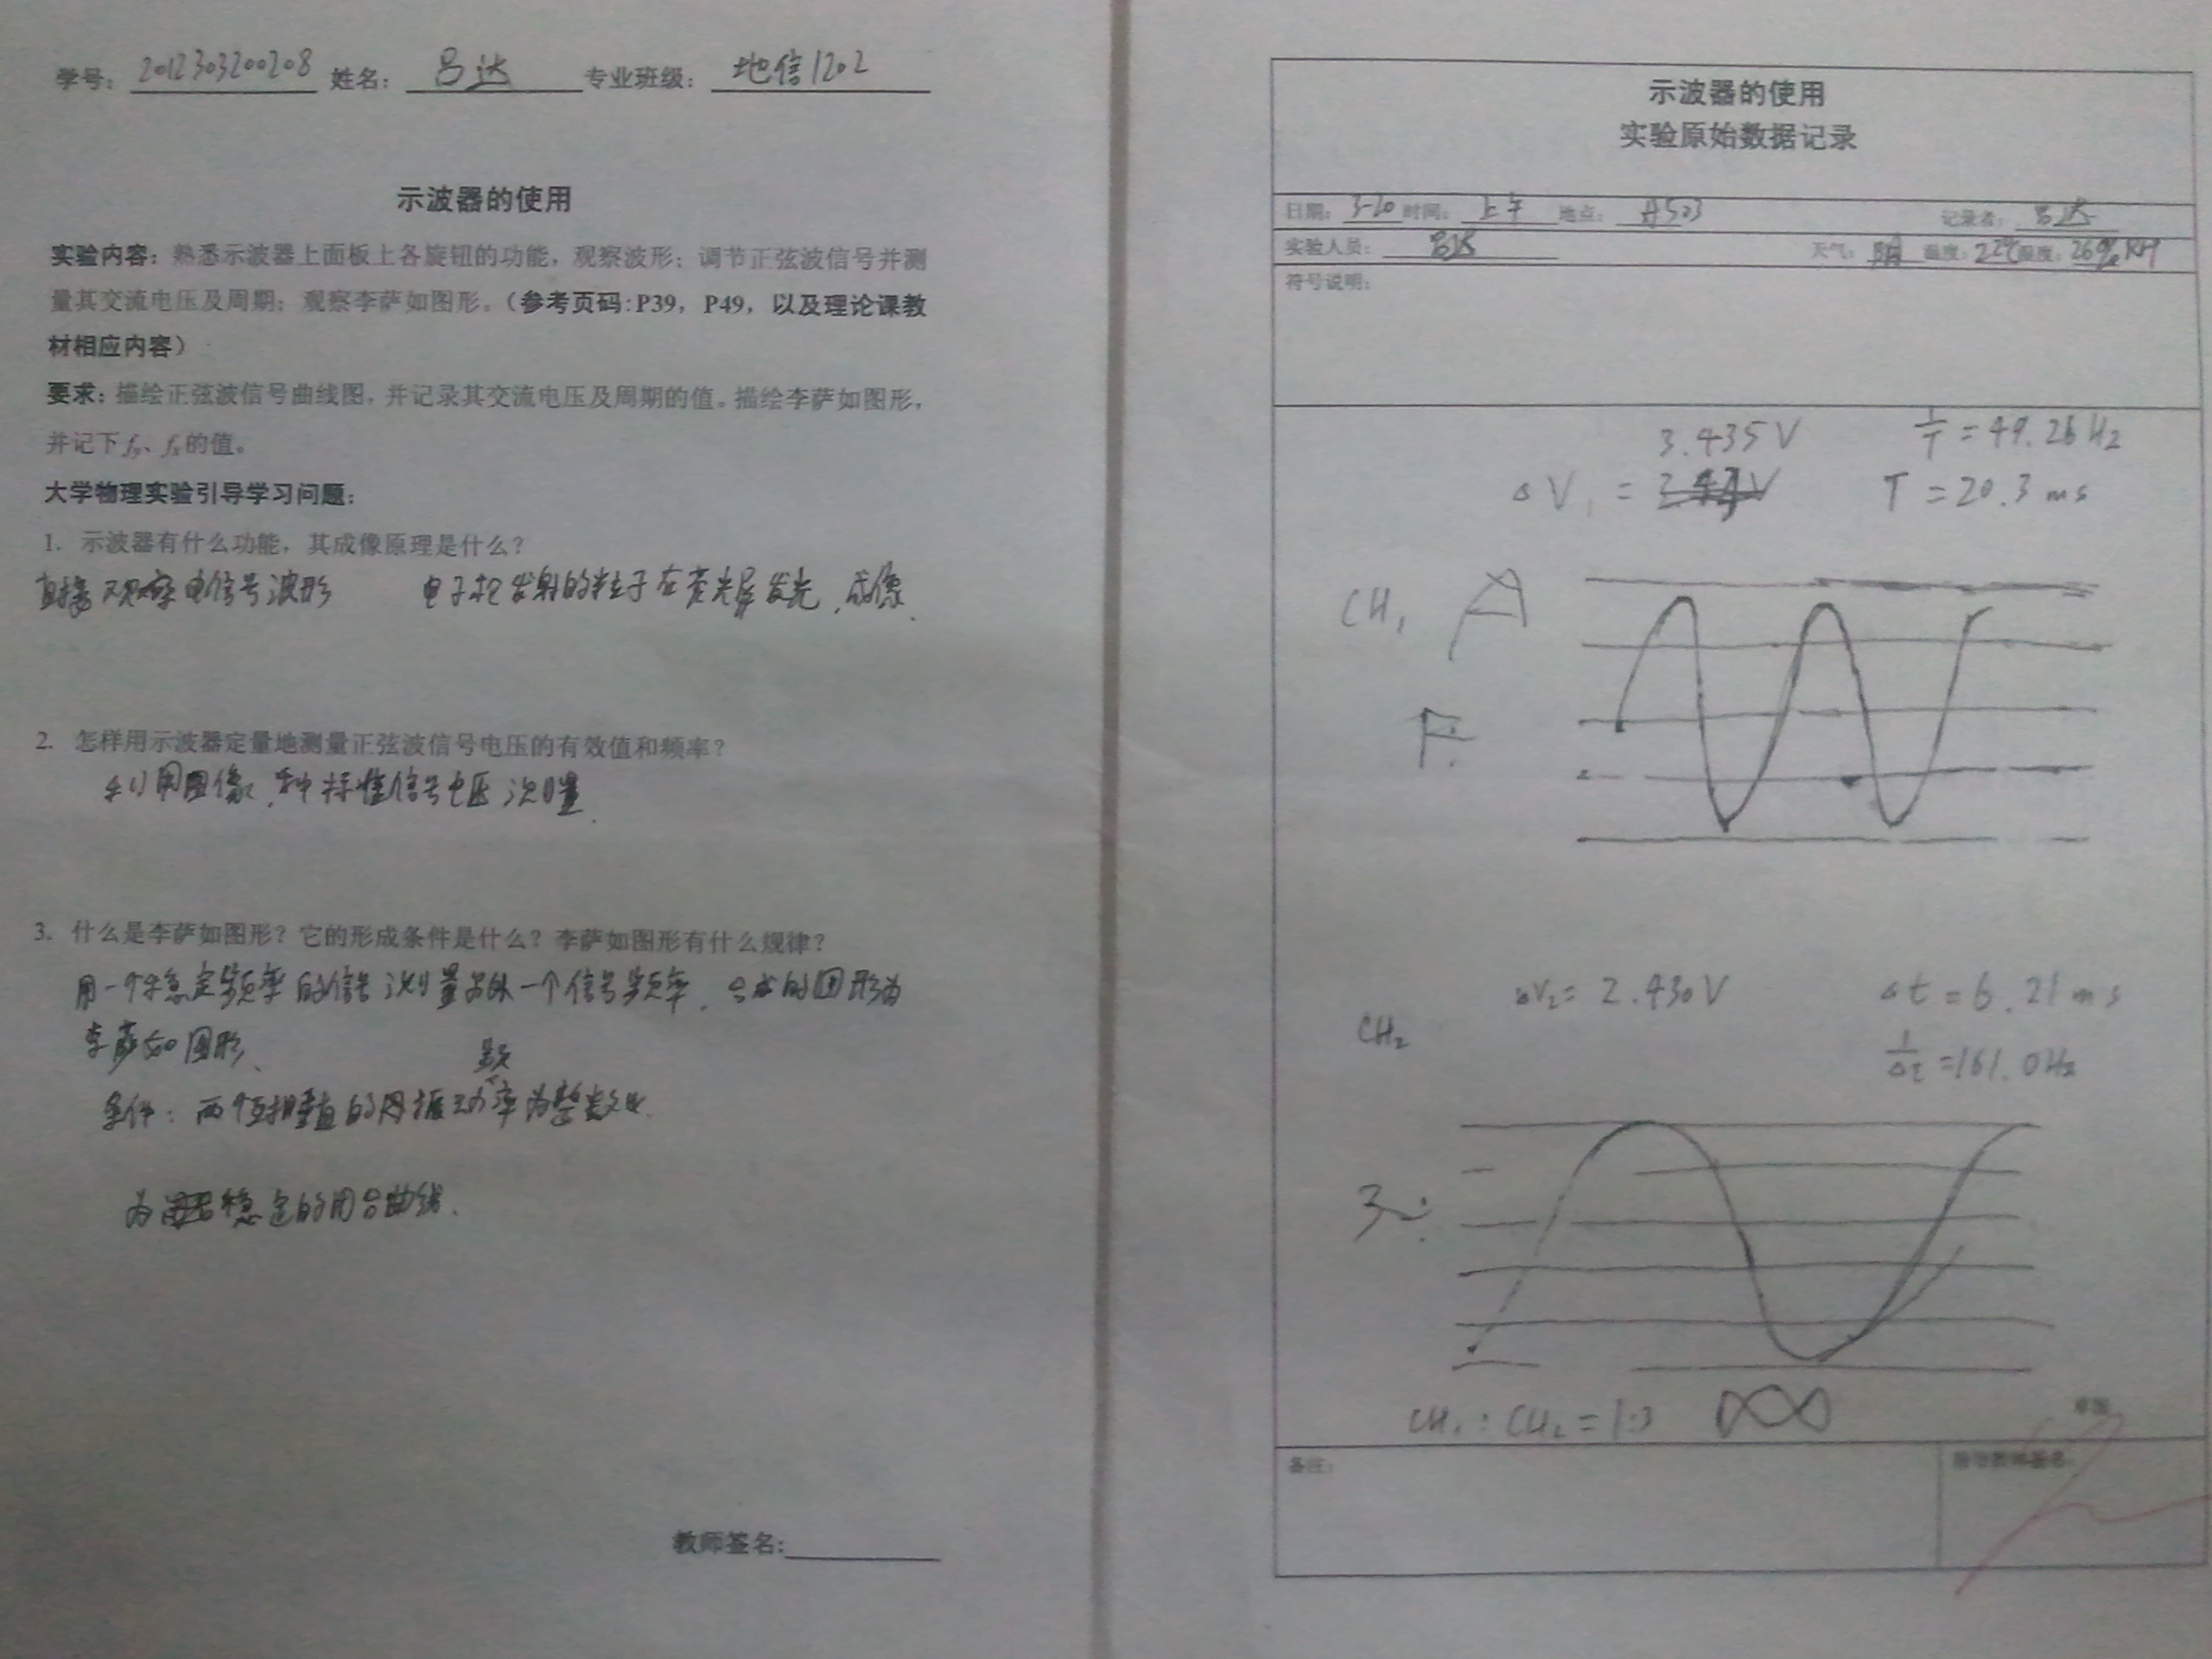 学号: 2012303200208 姓名: 吕达 专业班级: 地信1202
示波器的使用
实验内容: 熟悉示波器上面板上各旋钮的功能, 观察波形; 调节正弦波信号并测
量其交流电压及周期; 观察李萨如图形。(参考页码:P39, P49, 以及理论课教
材相应内容)
要求: 描绘正弦波信号曲线图, 并记录其交流电压及周期的值。描绘李萨如图形,
并记下 fy、fx 的值。
大学物理实验引导学习问题:
1. 示波器有什么功能, 其成像原理是什么?
直接观察电信号波形 电子枪发射的粒子在荧光屏发光,成像.
2. 怎样用示波器定量地测量正弦波信号电压的有效值和频率?
利用图像, 和标准信号电压测量.
3. 什么是李萨如图形? 它的形成条件是什么? 李萨如图形有什么规律?
用一个稳定频率的信号测量另外一个信号频率, 合成的图形为
李萨如图形、
条件: 两个互相垂直的 振动频率为整数比.
为 稳定的闭合曲线.
教师签名:
示波器的使用
实验原始数据记录
日期: 3-20 时间: 上午 地点: A503 记录者: 吕达
实验人员: 吕达 天气: 阴 温度: 22℃ 湿度: 26% RH
符号说明:
3.435V 1/T = 49.26Hz
ΔV1 = T = 20.3ms
CH1
ΔV2 = 2.430V Δt = 6.21ms
CH2
1/Δt = 161.0Hz
CH1 : CH2 = 1:3
备注:
指导教师签名: